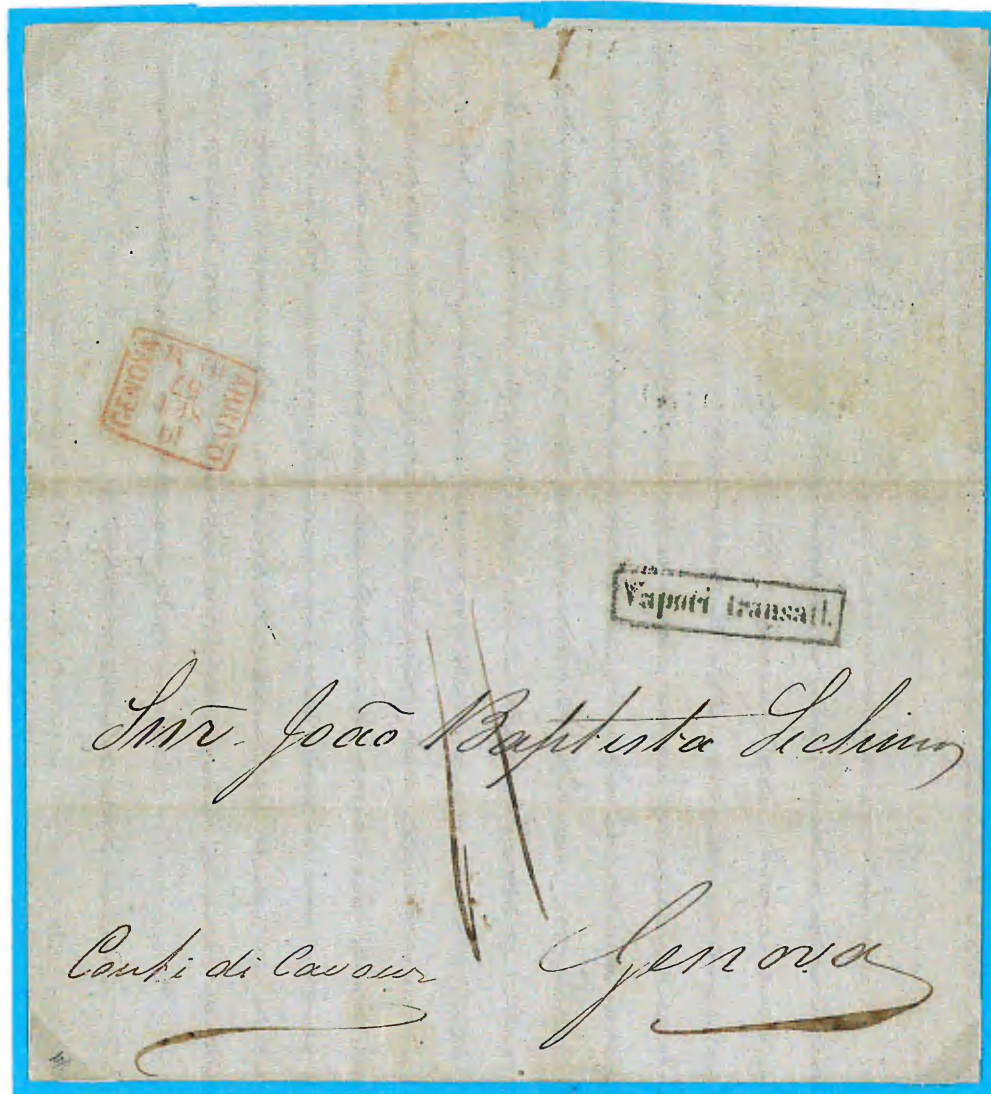 GENOVA
ARRIVO
Vapori transatl.
Snr. João Baptista
Conti di Cavour
Genova